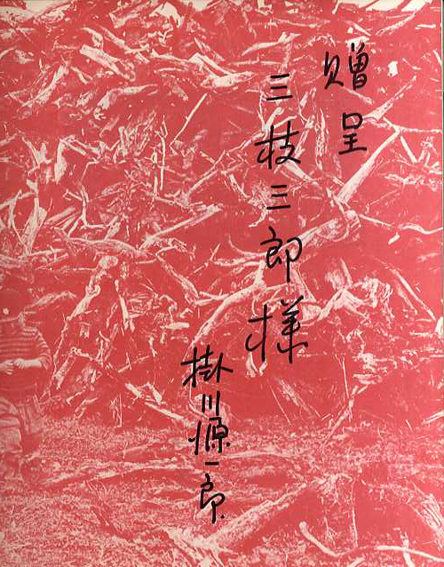 贈呈
三枝三郎様
掛川源一郎